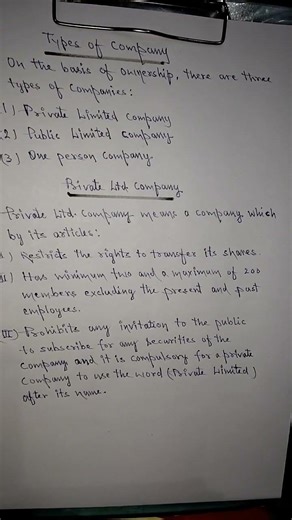 Types of Company
On the basis of ownership, there are three
types of companies:
(1) Private Limited Company
(2) Public Limited Company
(3) One person Company
Private Ltd Company
Private Ltd. Company means a company which
by its articles:
I) Restricts the rights to transfer its shares.
II) Has minimum two and a maximum of 200
members excluding the present and past
employees.
III) Prohibits any invitation to the public
to subscribe for any securities of the
company and it is compulsory for a private
Company to use the word (Private Limited)
after its name.